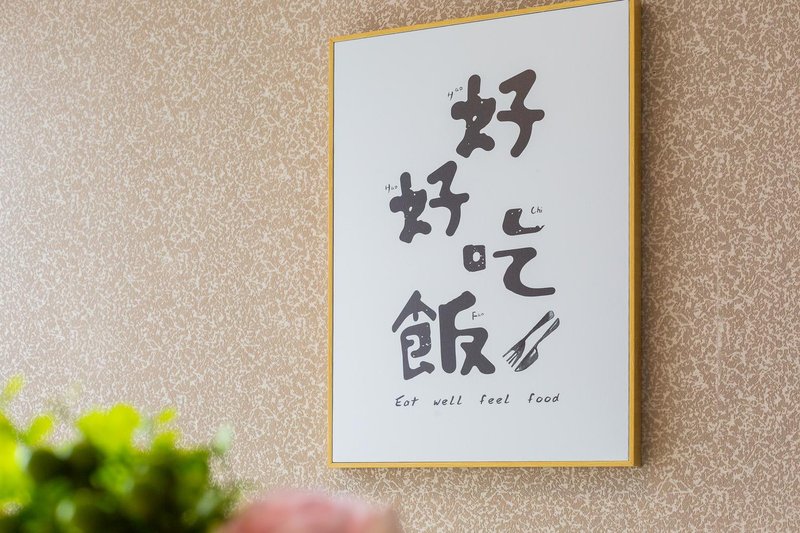 Hao 好
Hao 好
吃 Chi
飯 Fan
Eat well feel food